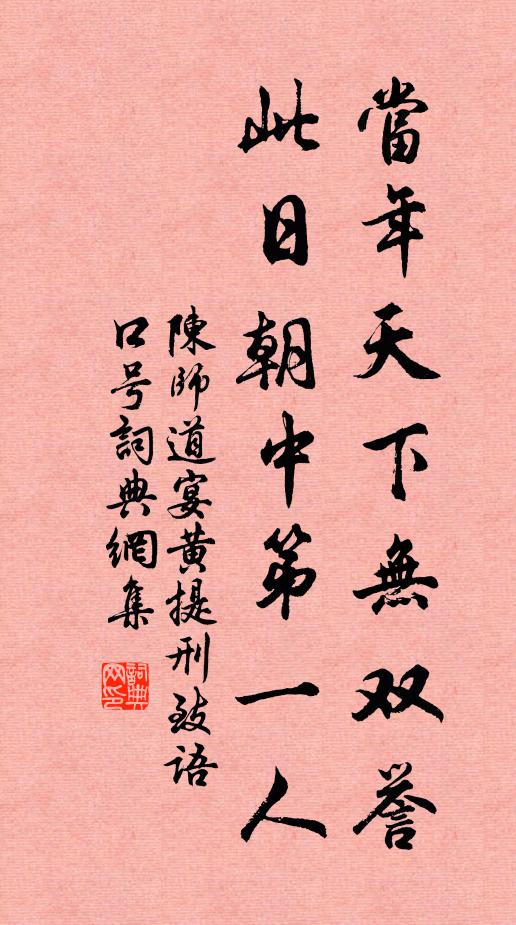 當年天下無双譽
此日朝中第一人
陳師道宴黄提刑致语
口号詞典網集
詞典网印